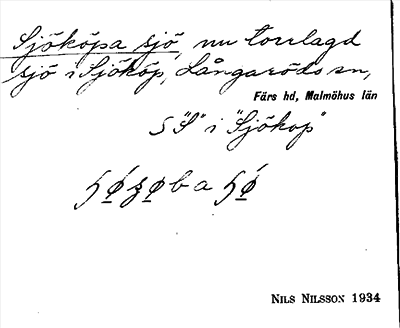 Sjököpa sjö, nu torrlagd
sjö i Sjököp, Långaröds sn,
Färs hd, Malmöhus län
S "S" i "Sjököp"
NILS NILSSON 1934